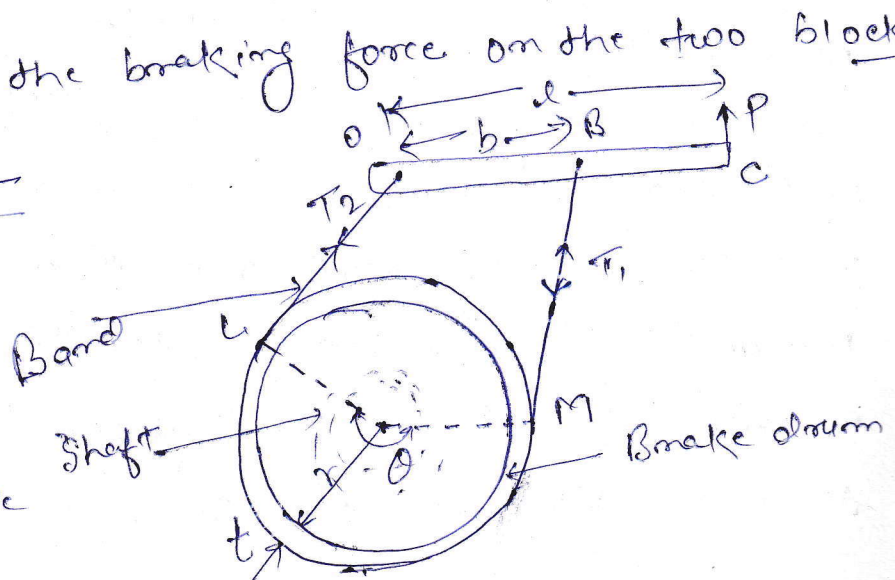 the braking force on the two block
l
O b B P
C
T2
T1
Band
L
M
Shaft
r θ
Brake drum
c
t